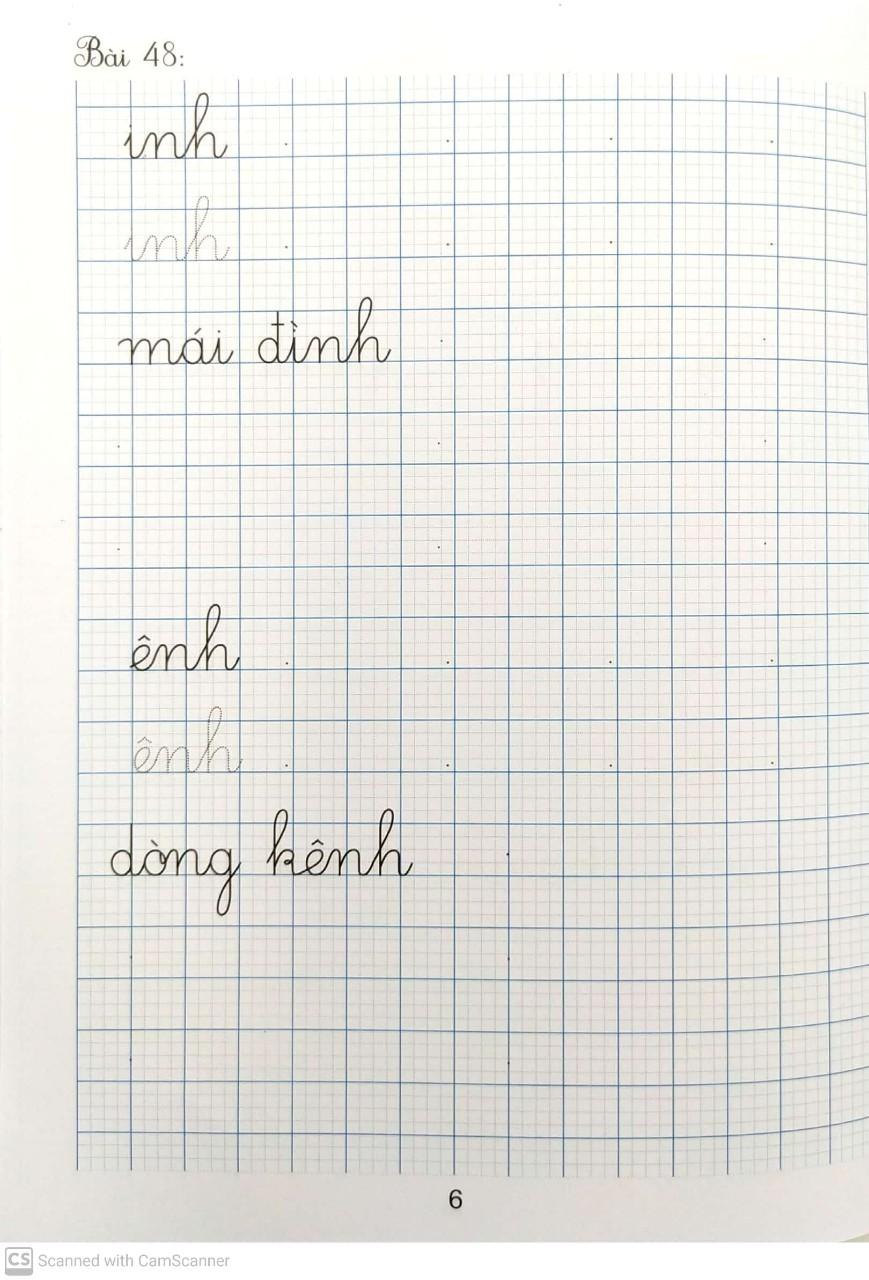 Bài 48:
inh
inh
mái đình
ênh
ênh
dòng kênh
6
CS Scanned with CamScanner